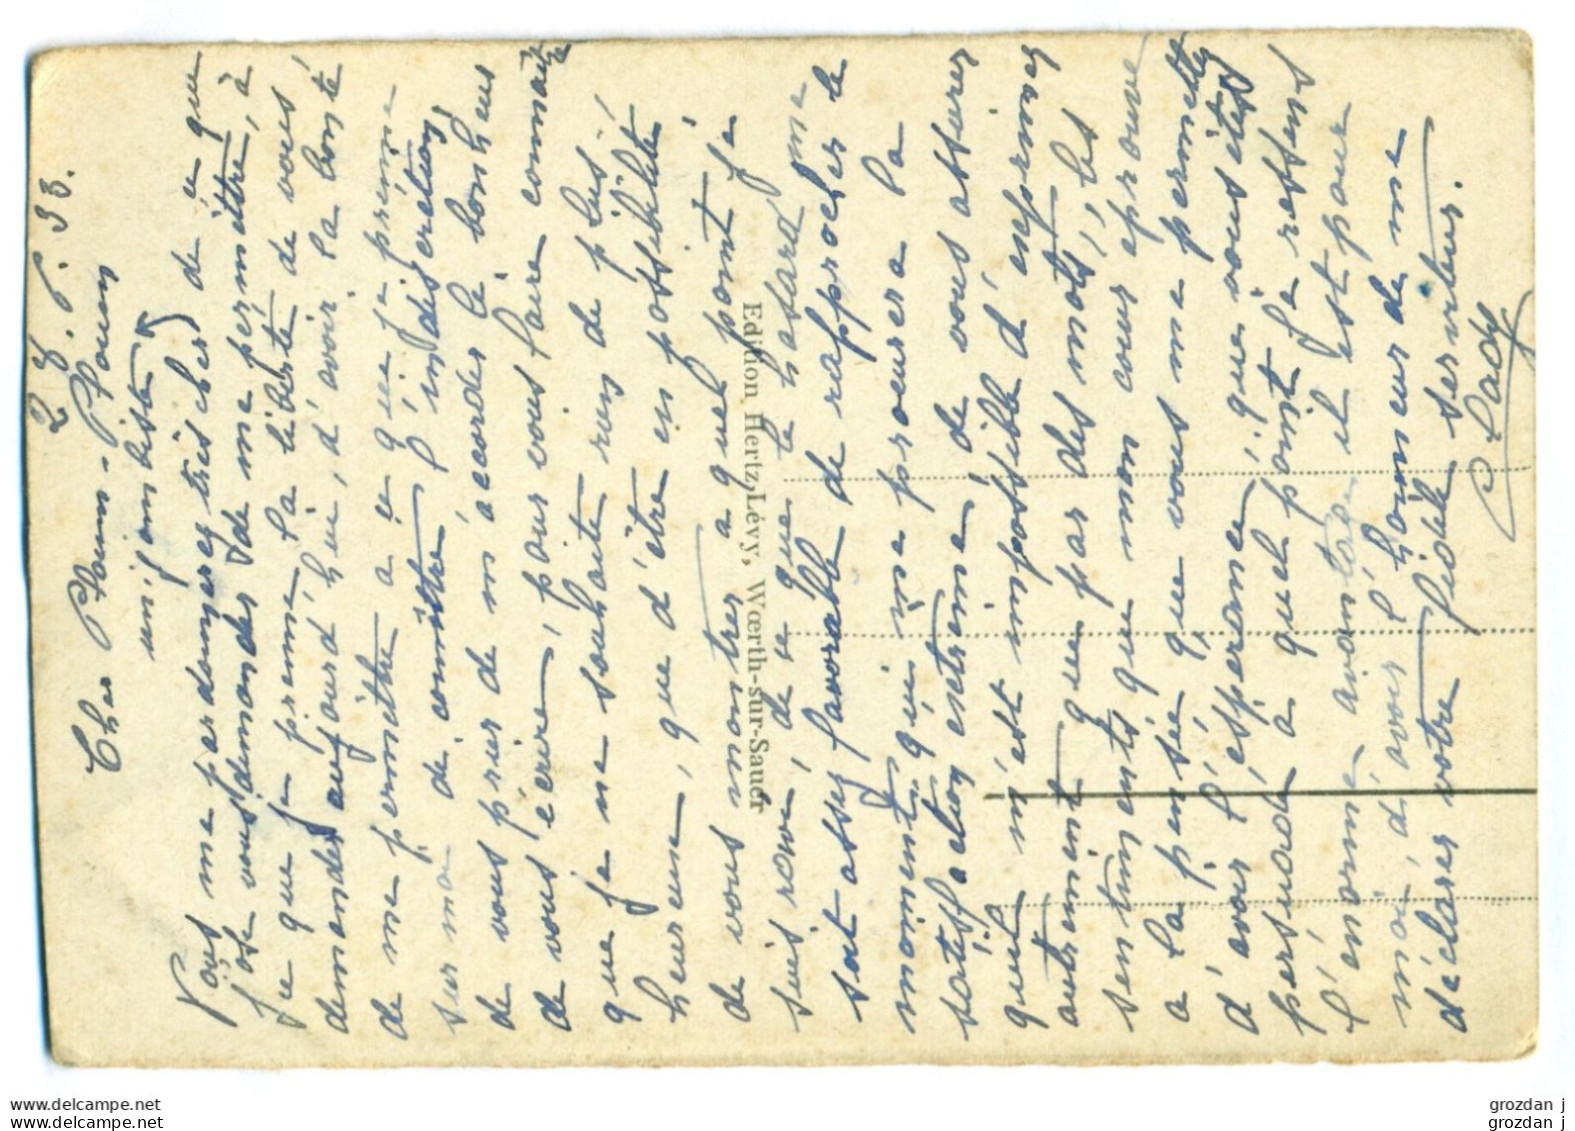 2.5.33.
Cher Ploum-Ploum
unijambiste
Vous me pardonnerez très cher de ce que
j'ose vous demander de me permettre, à
ce que je prenne la liberté de vous
demander aujourd'hui, d'avoir la bonté
de me permettre à ce que je prenne
sur moi de comêttre l'indiscretion,
de vous prier de m'accorder le bonheur
de vous écrire, pour vous faire connaître
que je ne souhaite rien de plus,
heureux, que d'être en possibilité
de vous montrer a quel point je
suis rowe, de ce que le hasard me
soit assez favorable de rapprocher le
moment qui me procurera la
satisfaction extrême, de vous assurer
qu'il m'est impossible d'exprimer
autrement que par des mots, les
sentiments que mon cœur éprouve
a la pensée que vous me permettez
d'avoir l'espérance, que vous êtes
persuadé a quel point je ressens
l'énorme avantage il est pour
moi, d'avoir l'honneur de me
déclarer votre fidèle serviteur.
Edition Hertz, Lévy, Wœrth-sur-Sauer
grozdan j
grozdan j
www.delcampe.net
www.delcampe.net